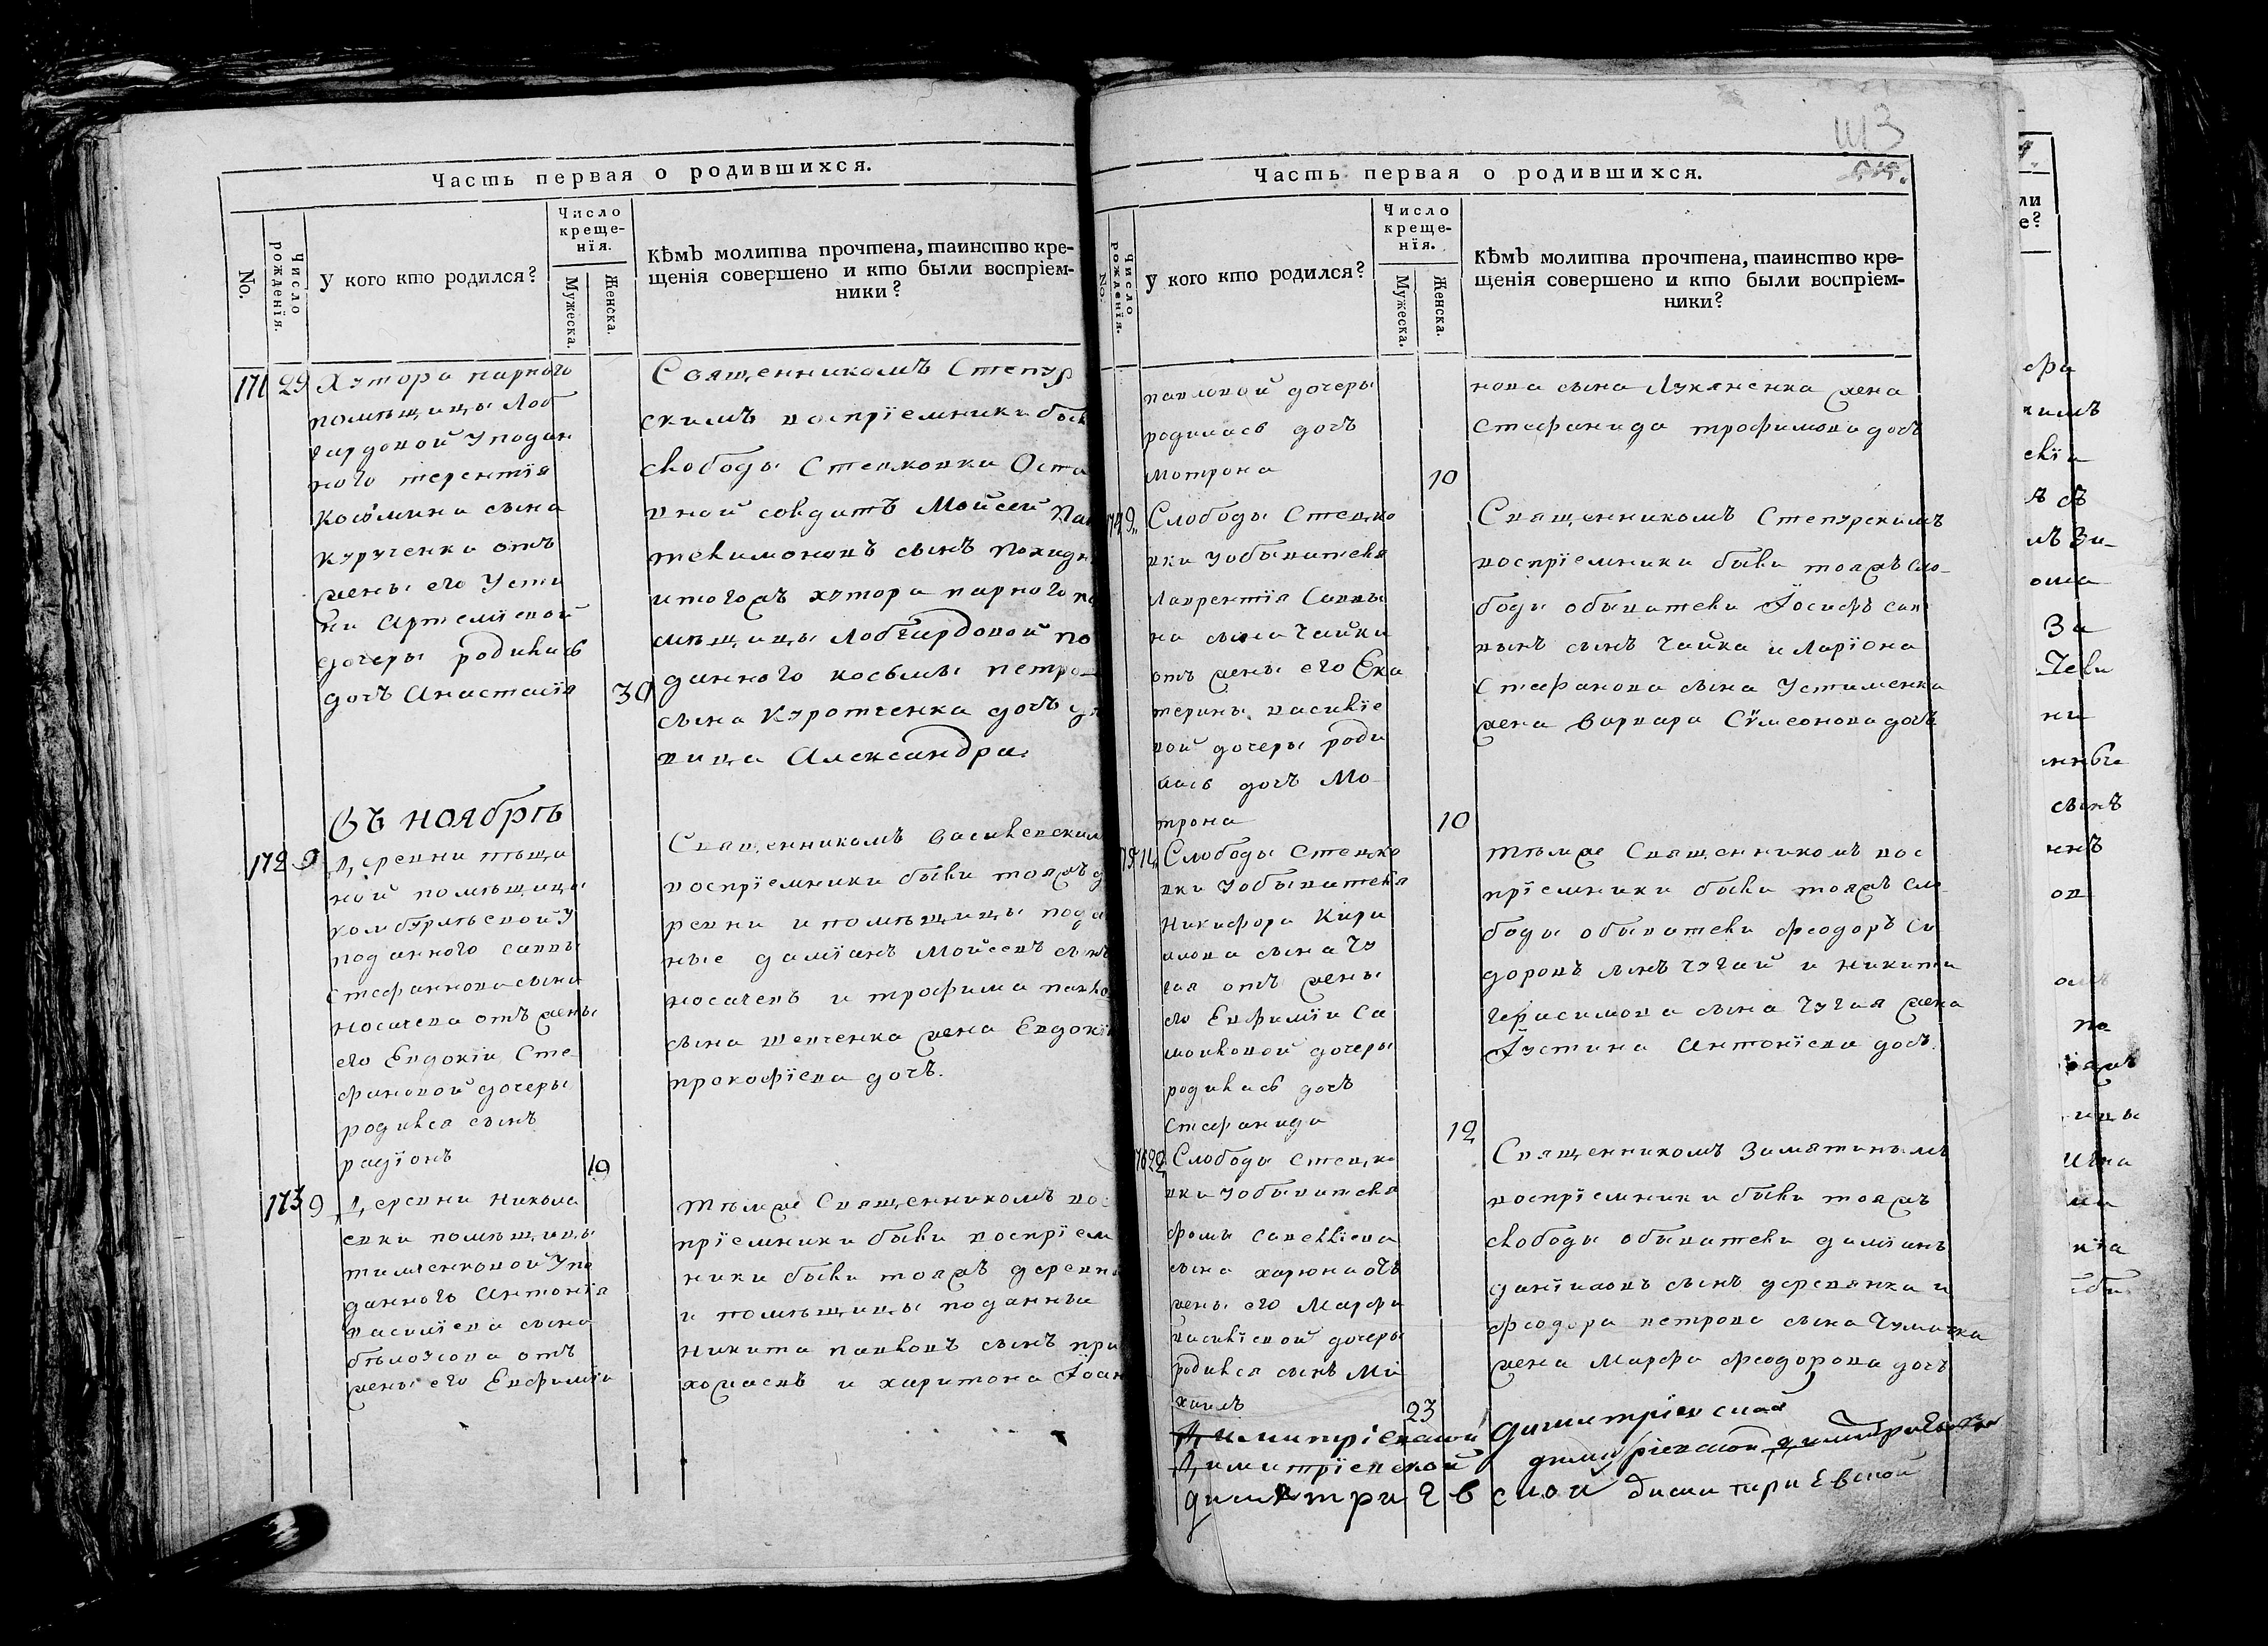 Часть первая о родившихся.
No.
Число рожденїя.
У кого кто родился?
Число
креще-
нїя.
Мужеска.
Женска.
Кѣмъ молитва прочтена, таинство кре-
щенія совершено и кто были воспріем-
ники?
171 29 Хутора парного
помѣщицы Лоб
гардовой у подан
ного терентїя
Косьмина сына
курученка отъ
жены его Усти
ни Артемїевой
дочеры родилась
дочъ Анастасїя
30
Священникомъ Степур
скимъ воспрїемники был
слободы Степковки
вной совдатъ Мойсей
телимоновъ сынъ
итогожъ хутора парного по
мѣщицы Лобгардовой по
данного косьмы петро-
сына Куротченка дочъ
вица Александра.
Въ ноябрѣ
172 9 Деревни тѣща
ной помѣщици
у
поданного саввы
стефаннова сына
носачева отъ жены
его Евдокїи Сте
фановой дочеры
родился сынъ
радїонъ
10
Священникомъ василевским
воспрїемники были тояжъ д
ревни и помѣщицы пода
ные дамїанъ Мойсеевъ сынъ
носачевъ и трофима павло
сына шевченка жена Евдокї
прокофїева дочъ.
173 9 Деревни Никола
евки помѣщицы
тимченковой у по
данного Антонїя
василїева сына
бѣлоусова отъ
жены его Евфимїи
тѣмже Священникомъ вос
прїемники были воспрїем
ники были тояжъ деревни
и помѣщицы поданныи
никита павловъ сынъ при
хожаевъ и харитона Іоан
Часть первая о родившихся.
113
No.
Число рожденїя.
У кого кто родился?
Число
креще-
нїя.
Мужеска.
Женска.
Кѣмъ молитва прочтена, таинство кре-
щенія совершено и кто были воспріем-
ники?
павловой дочеры
родилась дочъ
мотрона
10
нова сына Лукяненка жена
Стефанида трофимова дочъ
174 9 Слободы Стецко
вки уобывателя
Лаврентїя Саввы
на сына Чайки
отъ жены его Ека
терины василїе
вой дочеры роди
лась дочъ Мо-
трона
10
Священникомъ Степурскимъ
воспрїемники были тояжъ сло-
боды обыватели Іосифъ сав
вынъ сынъ Чайка и Ларїона
Стефанова сына Устименка
жена варвара Сѵмеонова дочъ
175 11 Слободы Стецко
вки уобывателя
Никифора Кири
лова сына Чу
гая отъ жены
его Евфимїи Са
мойловой дочеры
родилась дочъ
Стефанида
12
тѣмже Священникомъ вос
прїемники были тояжъ сло
боды обыватели феодоръ Си
доровъ сынъ Чугай и никити
герасимова сына Чугая жена
Іустина Антонїева дочъ.
176 22 Слободы Стецко
вки уобывателя
фомы савеллїева
сына харюна отъ
жены его Марфы
василїевой дочеры
родился сынъ Ми
хаилъ
23
Священникомъ Замятинымъ
воспрїемники были тояжъ
слободы обыватели дамїанъ
данїиловъ сынъ деревянка и
феодора петрова сына Чумачка
жена Марфа феодорова дочъ
Димитрїевской димитрїевской
Димитрїевской димитрїевской димитриевской
димитриевской димитриевской